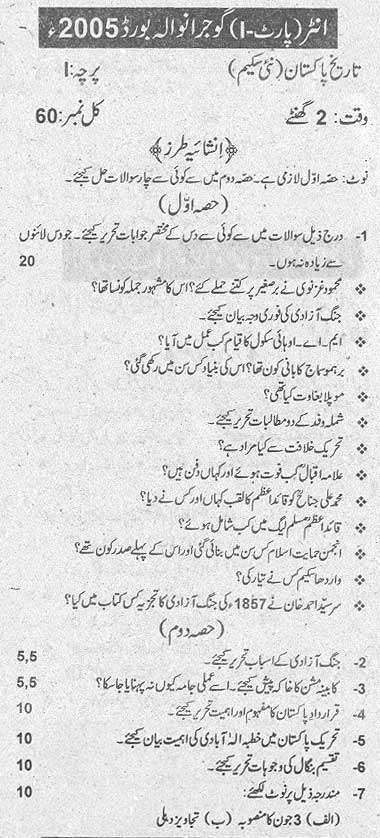 انٹر (پارٹ-I) گوجرانوالہ بورڈ 2005ء
تاریخ پاکستان (نئی سکیم) پرچہ: I
وقت: 2 گھنٹے کل نمبر: 60
﴿انشائیہ طرز﴾
نوٹ: حصہ اوّل لازمی ہے۔ حصہ دوم میں سے کوئی سے چار سوالات حل کیجئے۔
(حصہ اوّل)
1- درج ذیل سوالات میں سے کوئی سے دس کے مختصر جوابات تحریر کیجئے۔ جو دس لائنوں
سے زیادہ نہ ہوں۔ 20
❖ محمود غزنوی نے برصغیر پر کتنے حملے کئے؟ اس کا مشہور حملہ کونسا تھا؟
❖ جنگ آزادی کی فوری وجہ بیان کیجئے۔
❖ ایم۔اے۔او ہائی سکول کا قیام کب عمل میں آیا؟
❖ برہمو سماج کا بانی کون تھا؟ اس کی بنیاد کس سن میں رکھی گئی؟
❖ موپلا بغاوت کیا تھی؟
❖ شملہ وفد کے دو مطالبات تحریر کیجئے۔
❖ تحریک خلافت سے کیا مراد ہے؟
❖ علامہ اقبالؒ کب فوت ہوئے اور کہاں دفن ہیں؟
❖ محمد علی جناحؒ کو قائداعظم کا لقب کہاں اور کس نے دیا؟
❖ قائداعظمؒ مسلم لیگ میں کب شامل ہوئے؟
❖ انجمن حمایت اسلام کس سن میں بنائی گئی اور اس کے پہلے صدر کون تھے؟
❖ واردھا سکیم کس نے تیار کی؟
❖ سر سیّد احمد خان نے 1857ء کی جنگ آزادی کا تجزیہ کس کتاب میں کیا؟
(حصہ دوم)
2- جنگ آزادی کے اسباب تحریر کیجئے۔ 5,5
3- کابینہ مشن کا خاکہ پیش کیجئے۔ اسے عملی جامہ کیوں نہ پہنایا جا سکا؟ 5,5
4- قرارداد پاکستان کا مفہوم اور اہمیت تحریر کیجئے۔ 10
5- تحریک پاکستان میں خطبہ الٰہ آبادی کی اہمیت بیان کیجئے۔ 10
6- تقسیم بنگال کی وجوہات تحریر کیجئے۔ 10
7- مندرجہ ذیل پر نوٹ لکھئے: 10
(الف) 3 جون کا منصوبہ (ب) تجاویز دہلی